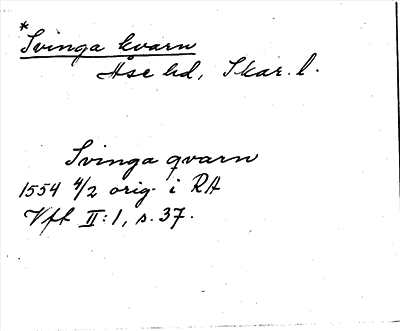 *
Svinga kvarn
Åse hd, Skar. l.
Svinga qvarn
1554 4/2 orig. i RA
Vft II:1, s. 37.